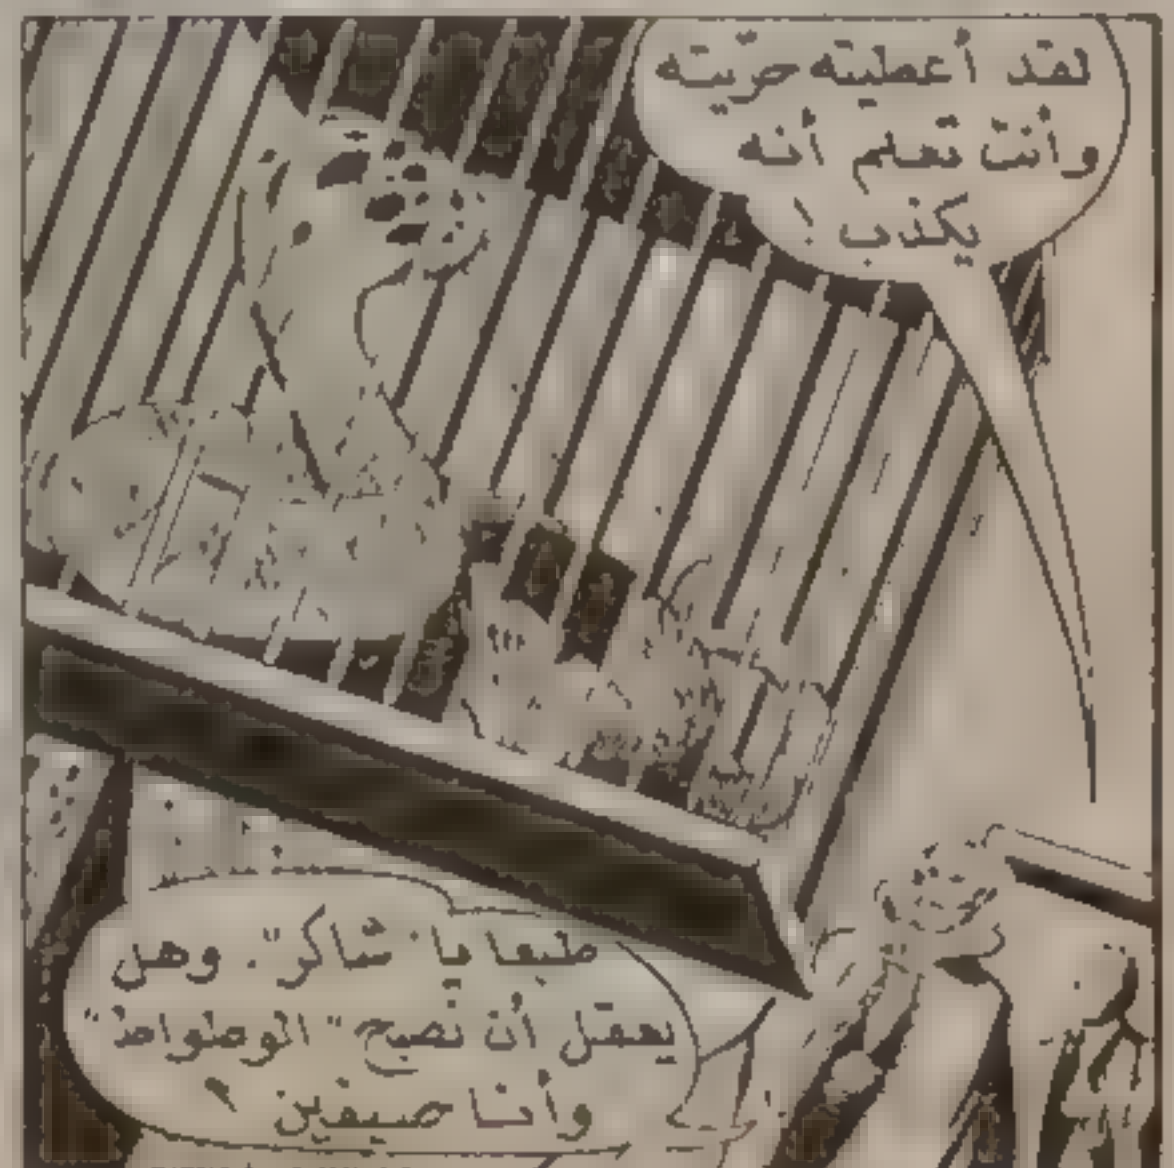 لقد أعطيته حريته
وأنت تعلم أنه
يكذب !
طبعا يا "شاكر". وهل
يعقل أن نصبح "الوطواط"
وأنا صديقين ؟